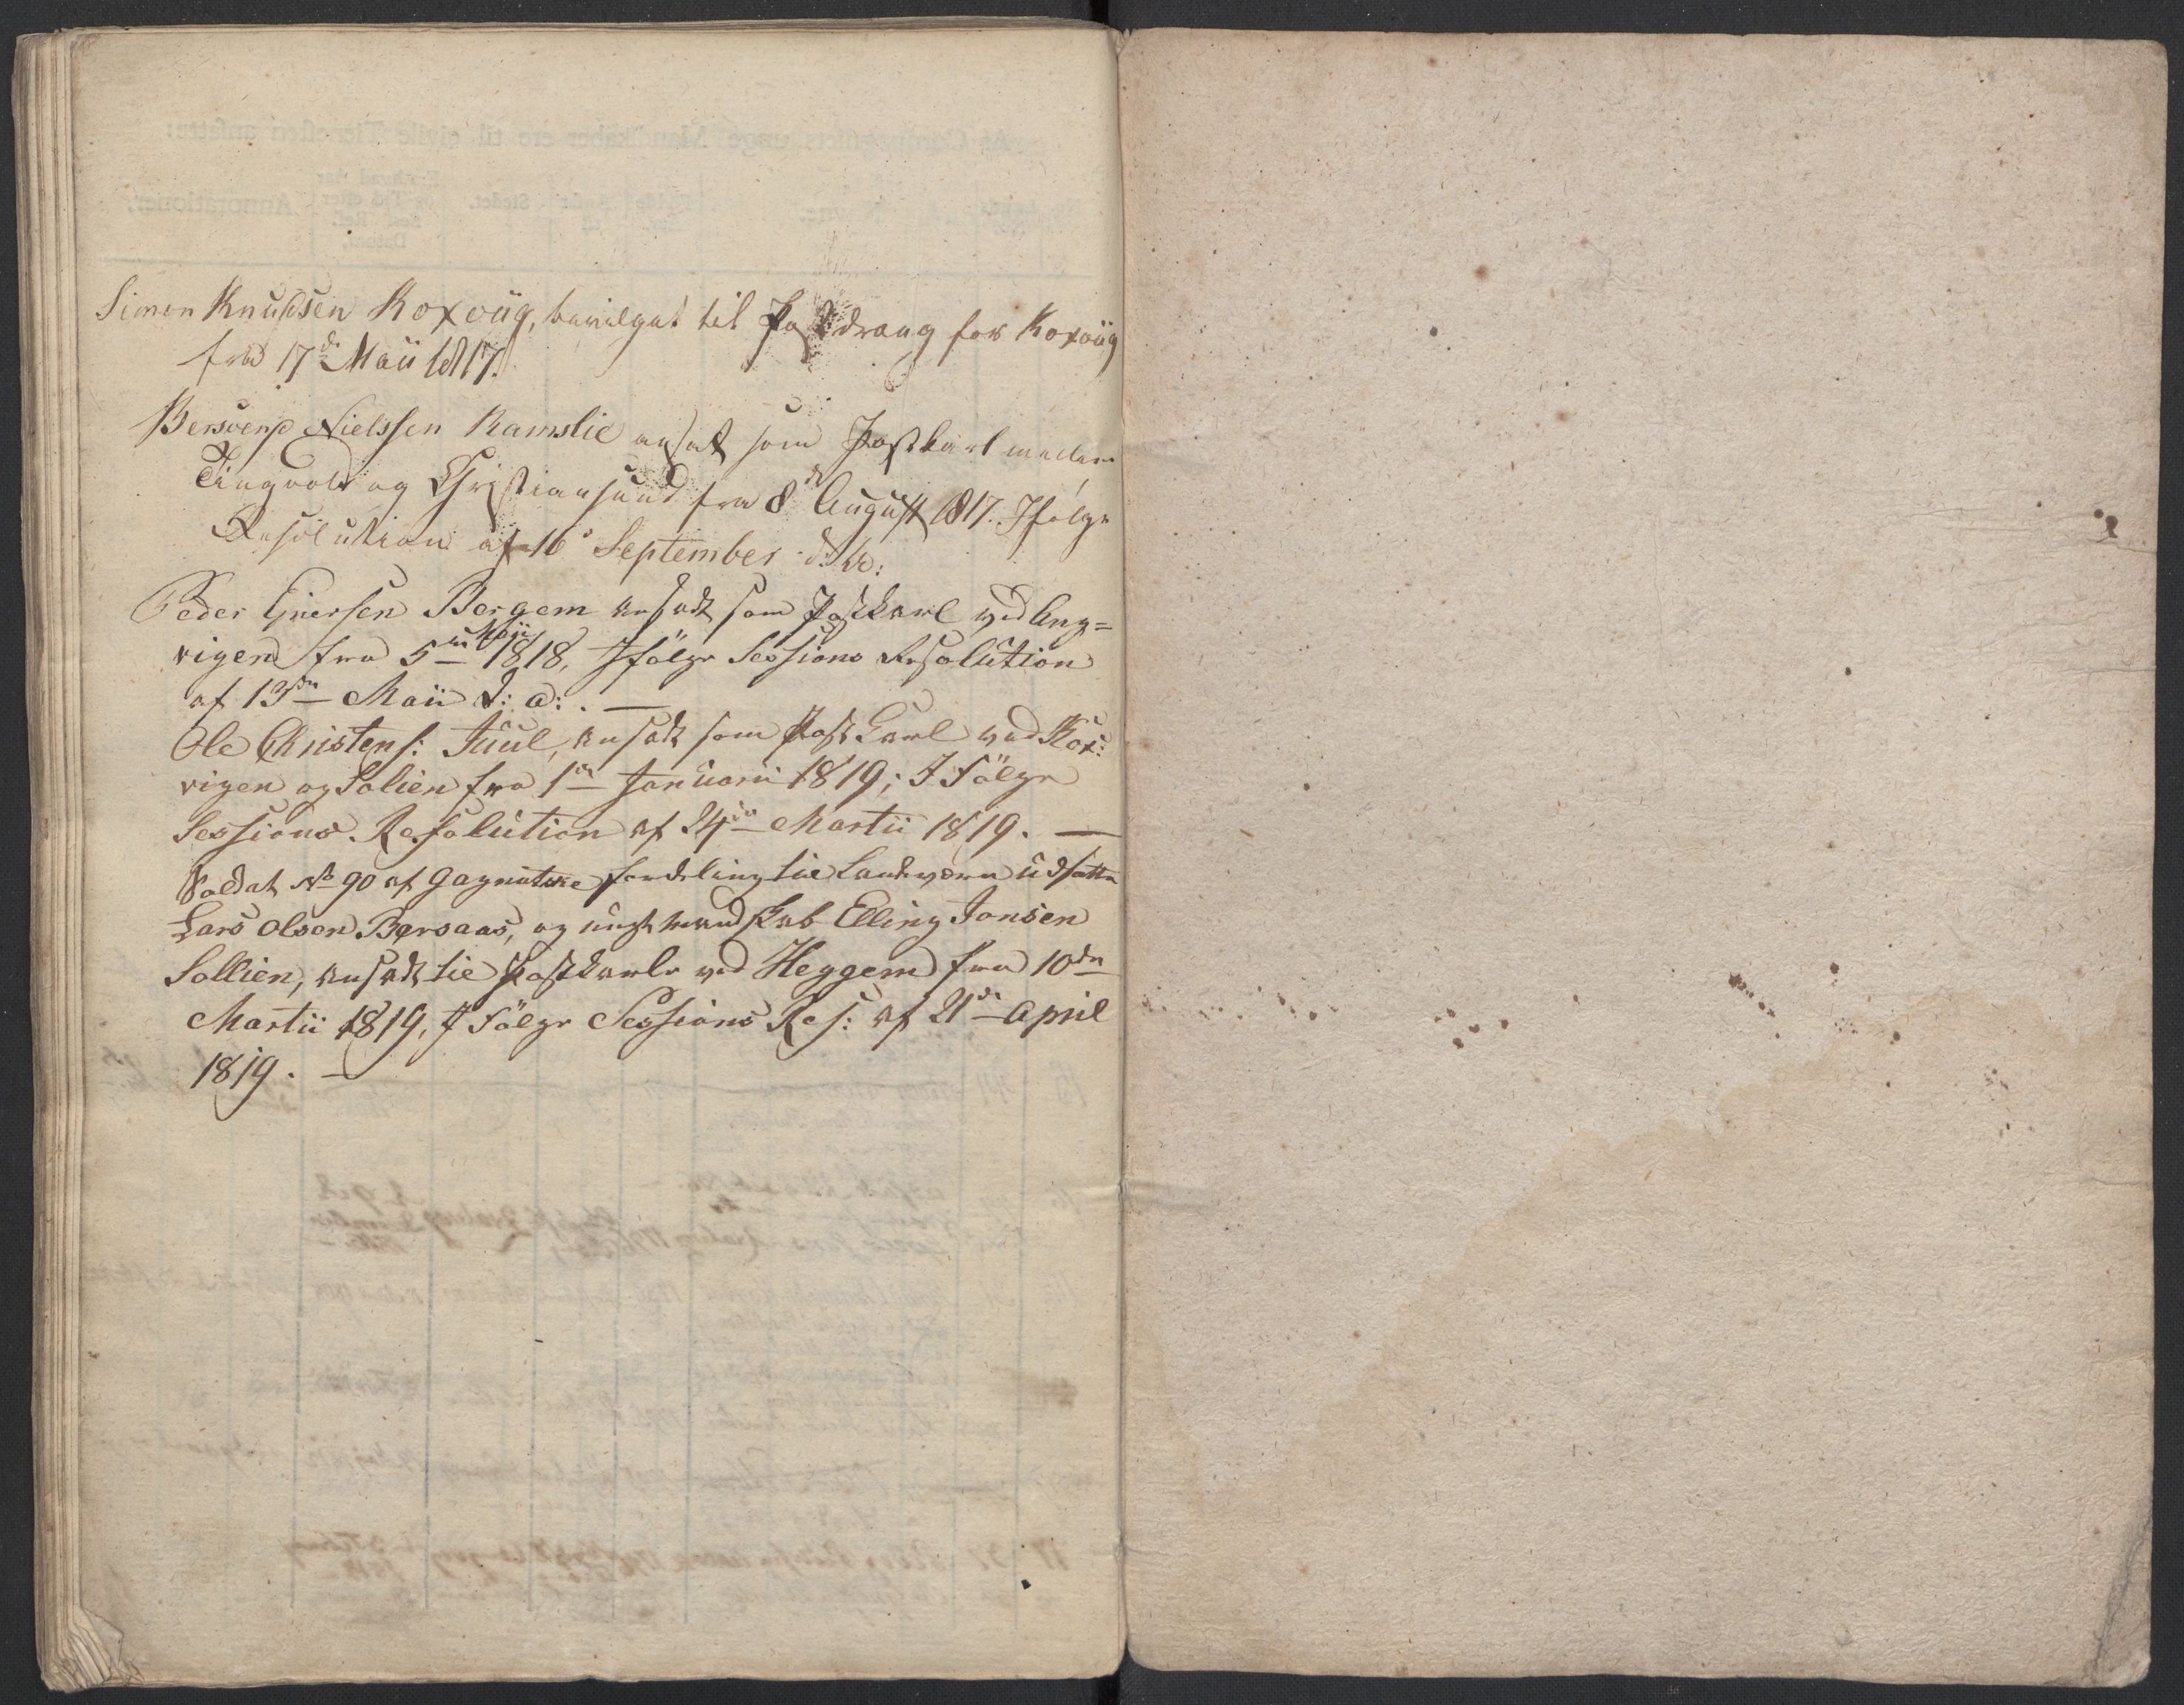 Simon Knudsen Koxvüg, bevilget til Postdreng for Koxvüg
fra 17de Maii 1817.
Bersvend Nielssen Ramslie ansat som Postkarl mellem
Tingvold og Christiansund fra 8de August 1817. Ifølge
Resolution af 16de September d: A:
Peder Eriersen Bergem ansadt som Postkarl ved Ang=
vigen fra 5te Maji 1818, Ifølge Sessions Resolution
af 13de Maii d: a: . —
Ole Christens: Juul, ansadt som Post Karl ved Kox:
vigen og Solien fra 1te Januarii 1819; I Følge
Sessions Resolution af 24de Martii 1819. —
Soldat No 90 af Gagnatske fordeling til Landværn udsatte
Lars Olsen Bersaas, og ungt mandskab Elling Jonsen
Sollien, ansadt til Postkarle ved Heggem fra 10de
Martii 1819, I Følge Sessions Res: af 21de April
1819. —